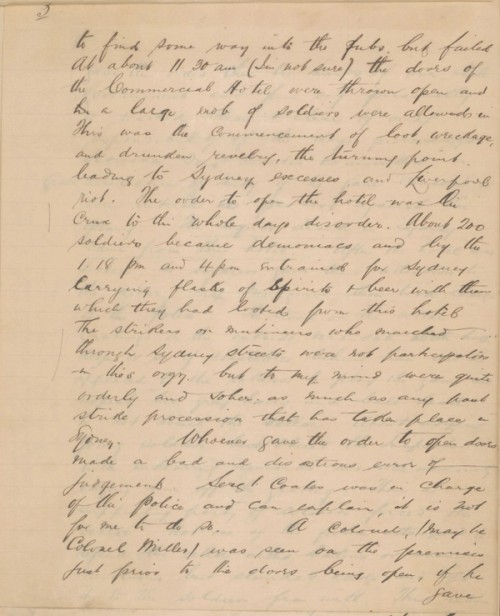 3
to find some way into the pubs, but failed
At about 11 30 am (Im not sure) the doors of
the Commercial Hotel were thrown open and
a large mob of soldiers were allowed in
This was the commencement of loot, wreckage,
and drunken revelry, the turning point
leading to Sydney excesses, and Liverpool
riot. The order to open the hotel was the
Crux to the whole days disorder. About 200
soldiers became demoniacs and by the
1.18 pm and 4 pm entrained for Sydney
carrying flasks of spirits & beer with them
which they had looted from this hotel
The strikers or mutineers who marched
through Sydney streets were not participators
in this orgy, but to my mind were quite
orderly and sober, as much as any past
strike procession that has taken place in
Sydney. Whoever gave the order to open doors
made a bad and disastrous error of
judgement. Sergt Coates was in charge
of the Police and can explain, it is not
for me to do so. A Colonel, (may be
Colonel Miller) was seen on the premises
just prior to the doors being open, if he
gave